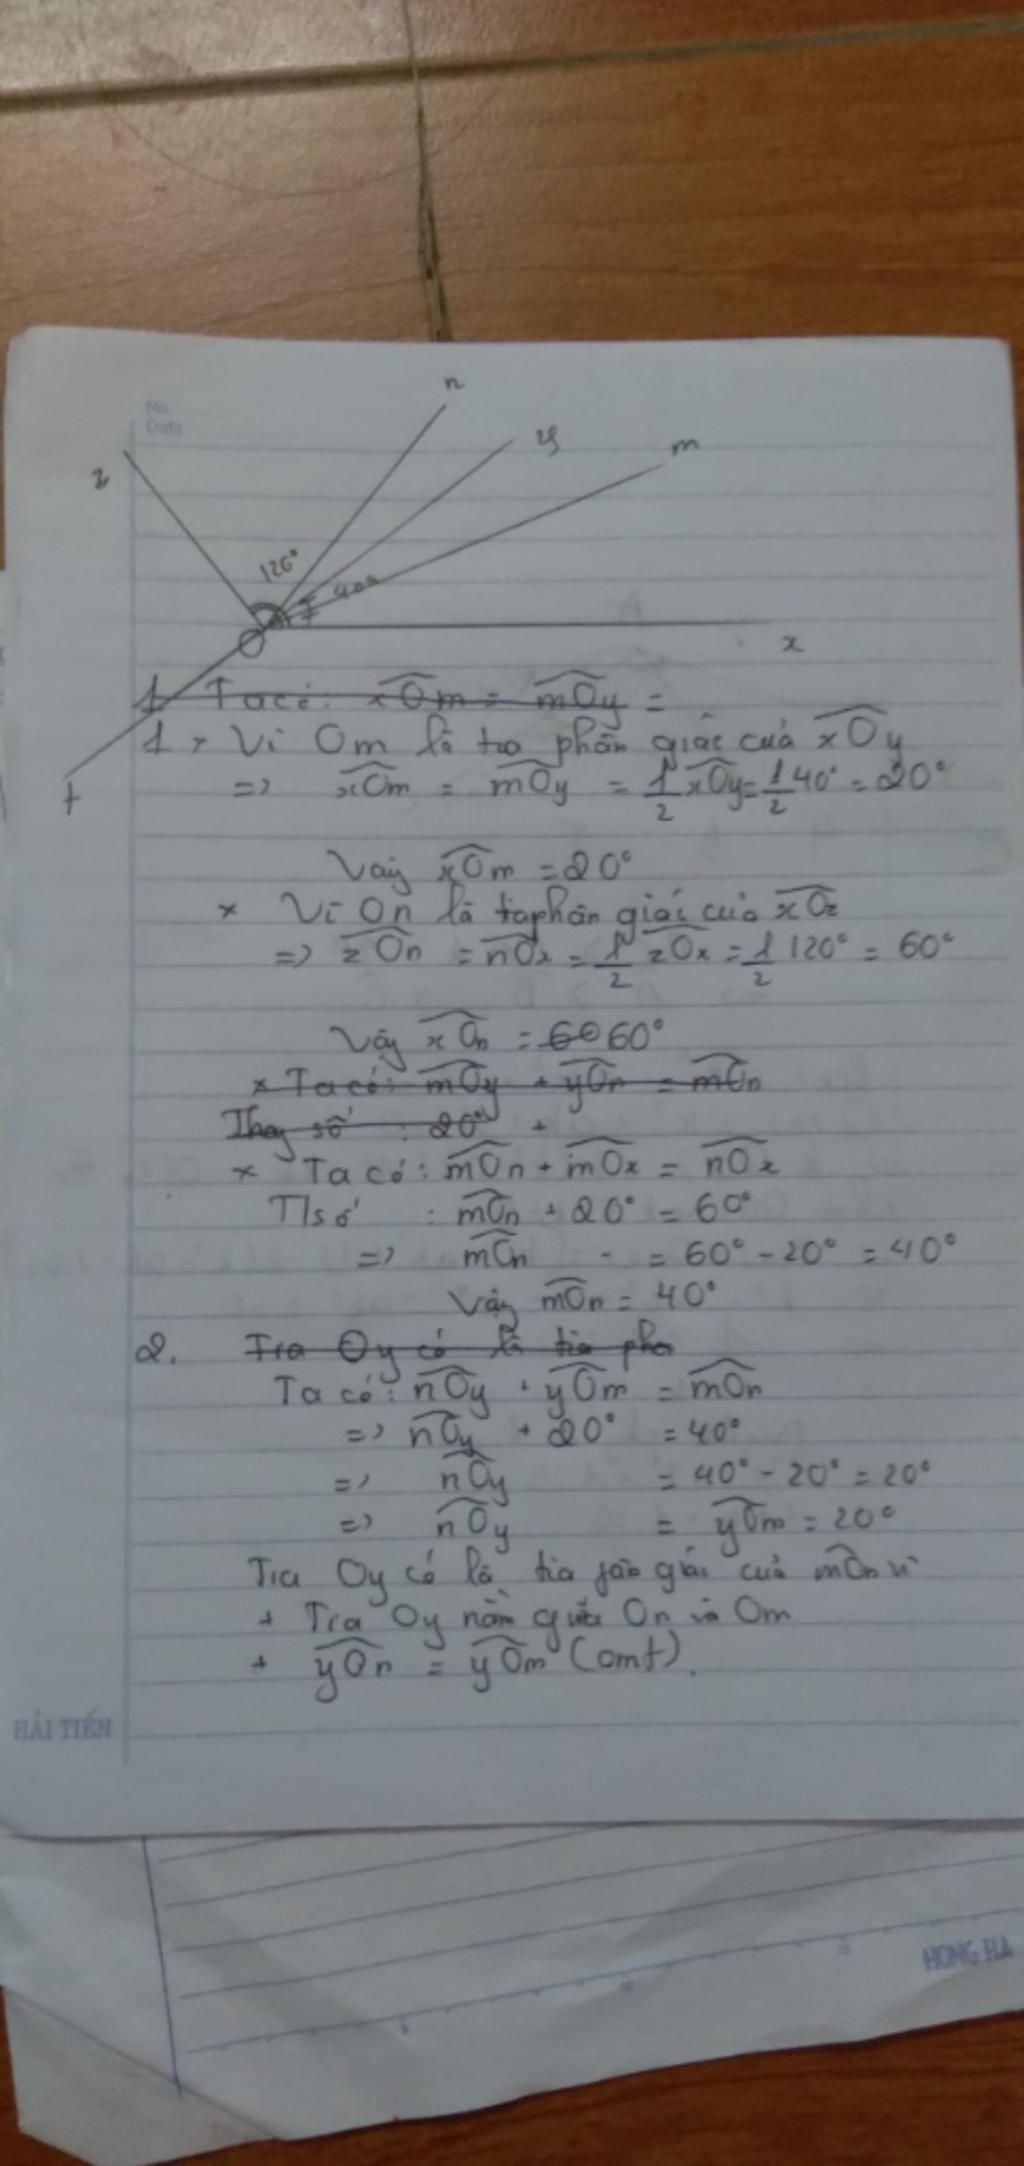 No.
Date
n
y
m
z
120°
40°
O
x
t
1 Ta có: xOm = mOy =
1 * Vì Om là tia phân giác của xOy
=> xOm = mOy = 1/2 xOy = 1/2 40° = 20°
Vậy xOm = 20°
* Vì On là tia phân giác của xOz
=> zOn = nOx = 1/2 zOx = 1/2 120° = 60°
Vậy xOn = 60°
* Ta có: mOy + yOn = mOn
Thay số : 20° +
* Ta có: mOn + mOx = nOx
T/số : mOn + 20° = 60°
=> mOn = 60° - 20° = 40°
Vậy mOn = 40°
2. Tia Oy có là tia pha
Ta có: nOy + yOm = mOn
=> nOy + 20° = 40°
=> nOy = 40° - 20° = 20°
=> nOy = yOm = 20°
Tia Oy có là tia fân giác của mOn vì
+ Tia Oy nằm giữa On và Om
+ yOn = yOm (cmt).
HẢI TIẾN
HONG HA